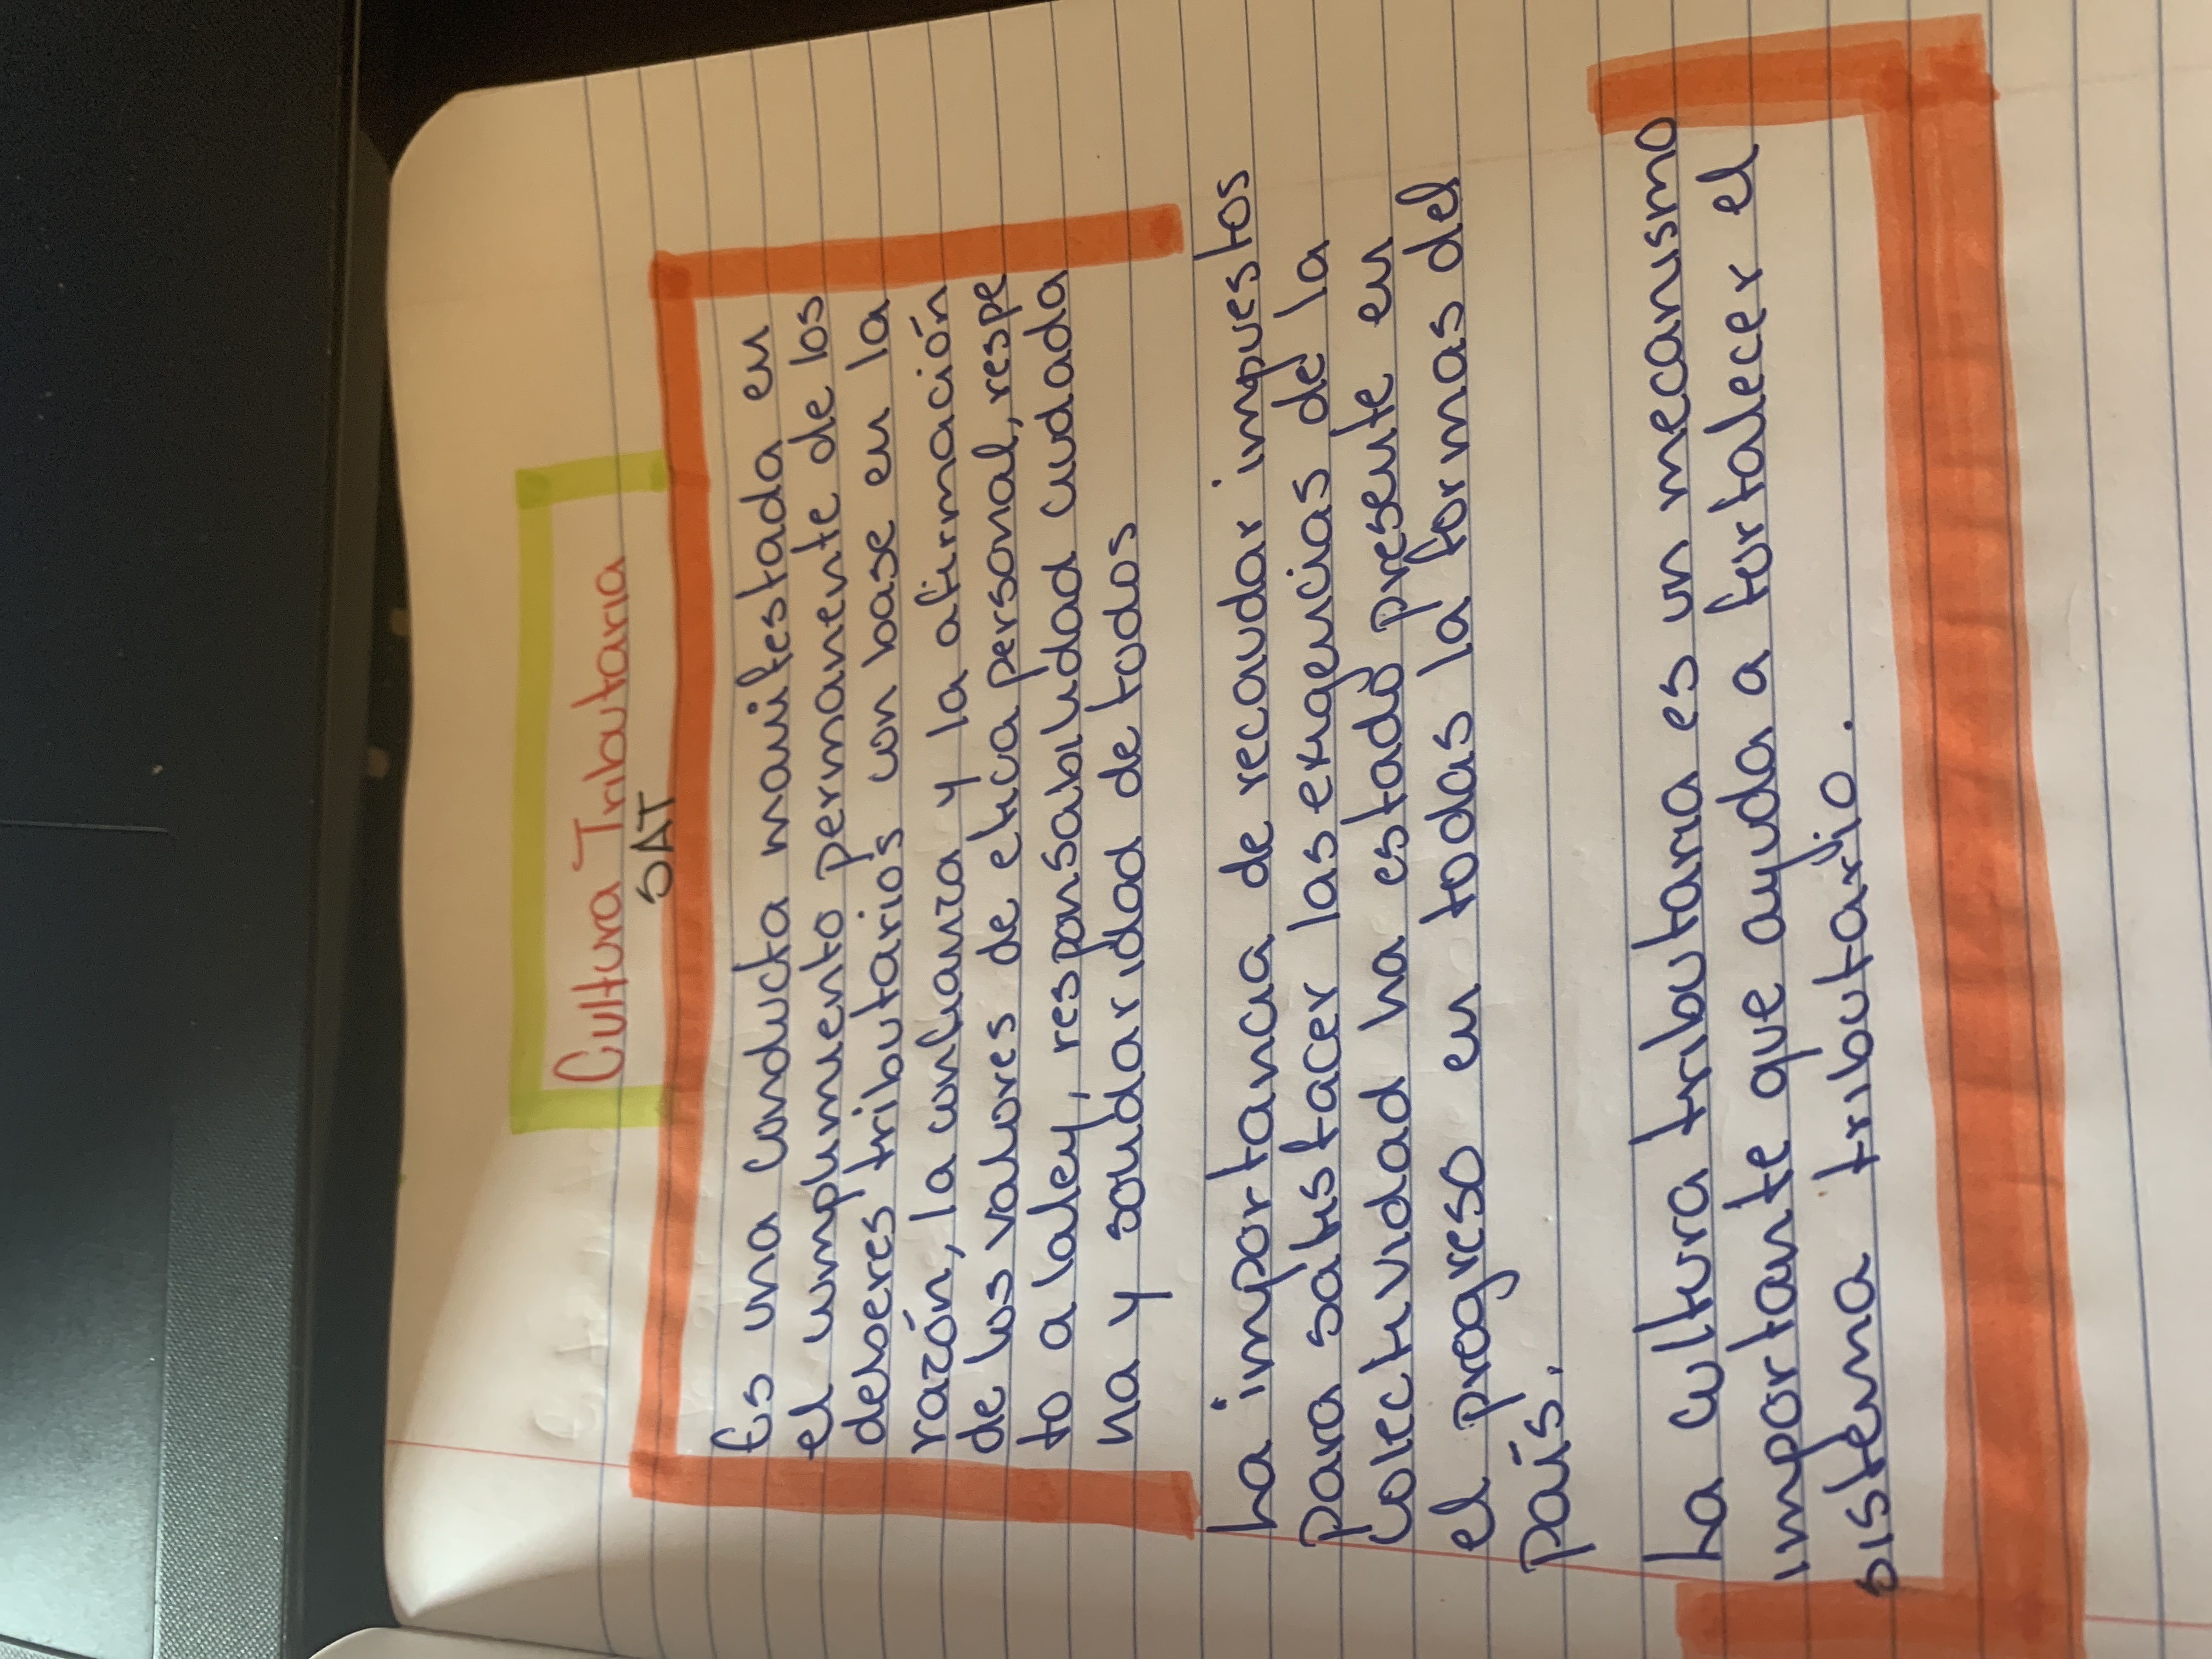 Cultura Tributaria
SAT
Es una conducta manifestada en
el cumplimiento permanente de los
deberes tributarios con base en la
razón, la confianza y la afirmación
de los valores de etica personal, respe
to a la ley, responsabilidad ciudada
na y solidaridad de todos
La importancia de recaudar impuestos
para satisfacer las exigencias de la
colectividad ha estado presente en
el progreso en todas la formas del
país.
La cultura tributaria es un mecanismo
importante que ayuda a fortalecer el
sistema tributario.